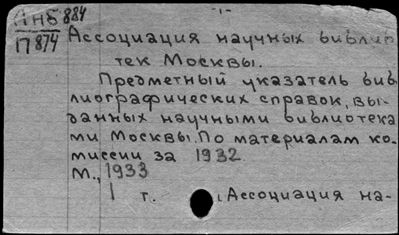 1нб 884
17 874
Ассоциация научных библио
тек Москвы.
Предметный указатель биб
лиографических справок, вы-
данных научными библиотека
ми Москвы. По материалам ко-
миссии за 1932
М., 1933
1 т.
Ассоциация на-